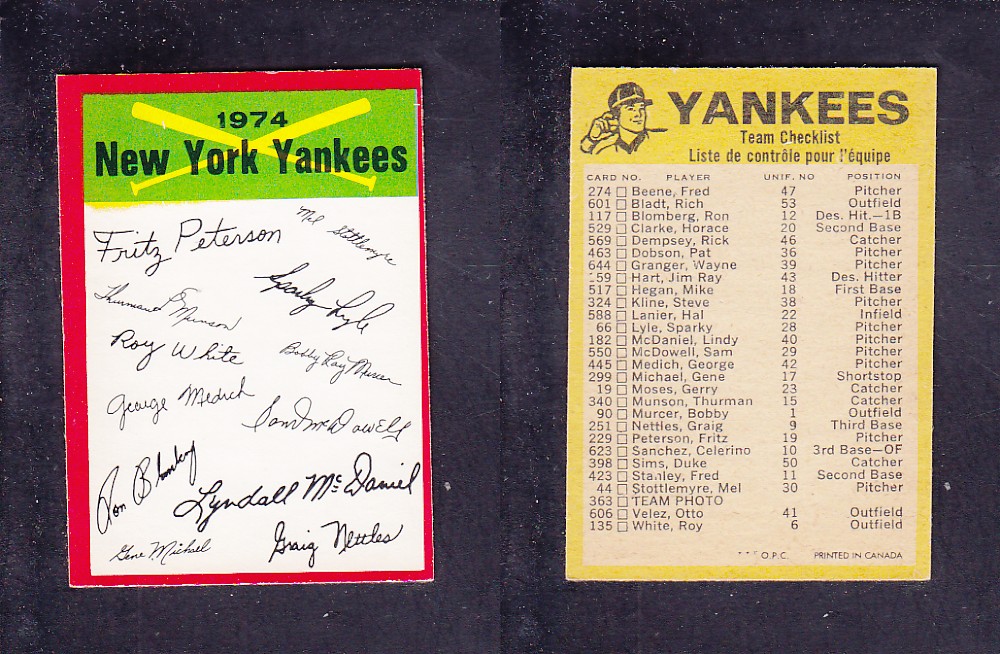 1974
New York Yankees
Fritz Peterson
Mel Stottlemyre
Sparky Lyle
Thurman Munson
Roy White
Bobby Ray Murcer
George Medich
Sam McDowell
Ron Blomberg
Lyndall McDaniel
Gene Michael
Graig Nettles
YANKEES
Team Checklist
Liste de contrôle pour l'équipe
CARD NO. PLAYER UNIF. NO POSITION
274 Beene, Fred 47 Pitcher
601 Bladt, Rich 53 Outfield
117 Blomberg, Ron 12 Des. Hit.—1B
529 Clarke, Horace 20 Second Base
569 Dempsey, Rick 46 Catcher
463 Dobson, Pat 36 Pitcher
644 Granger, Wayne 39 Pitcher
159 Hart, Jim Ray 43 Des. Hitter
517 Hegan, Mike 18 First Base
324 Kline, Steve 38 Pitcher
588 Lanier, Hal 22 Infield
66 Lyle, Sparky 28 Pitcher
182 McDaniel, Lindy 40 Pitcher
550 McDowell, Sam 29 Pitcher
445 Medich, George 42 Pitcher
299 Michael, Gene 17 Shortstop
19 Moses, Gerry 23 Catcher
340 Munson, Thurman 15 Catcher
90 Murcer, Bobby 1 Outfield
251 Nettles, Graig 9 Third Base
229 Peterson, Fritz 19 Pitcher
623 Sanchez, Celerino 10 3rd Base—OF
398 Sims, Duke 50 Catcher
423 Stanley, Fred 11 Second Base
44 Stottlemyre, Mel 30 Pitcher
363 TEAM PHOTO
606 Velez, Otto 41 Outfield
135 White, Roy 6 Outfield
O.P.C. PRINTED IN CANADA